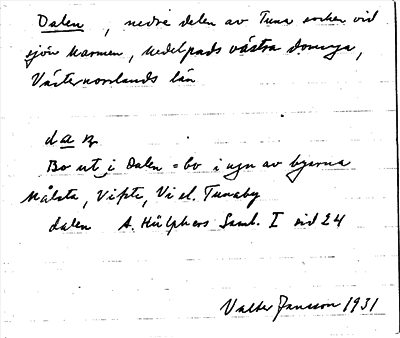 Dalen, nedre delen av Tuna socken vid
sjön Marmen, Medelpads västra domsaga,
Västernorrlands län
da n
Bo ut i Dalen = bo i ngn av byarna
Målsta, Vifte, Vi el. Tunaby
dalen A. Hülphers Saml. I sid 24
Valter Jansson 1931